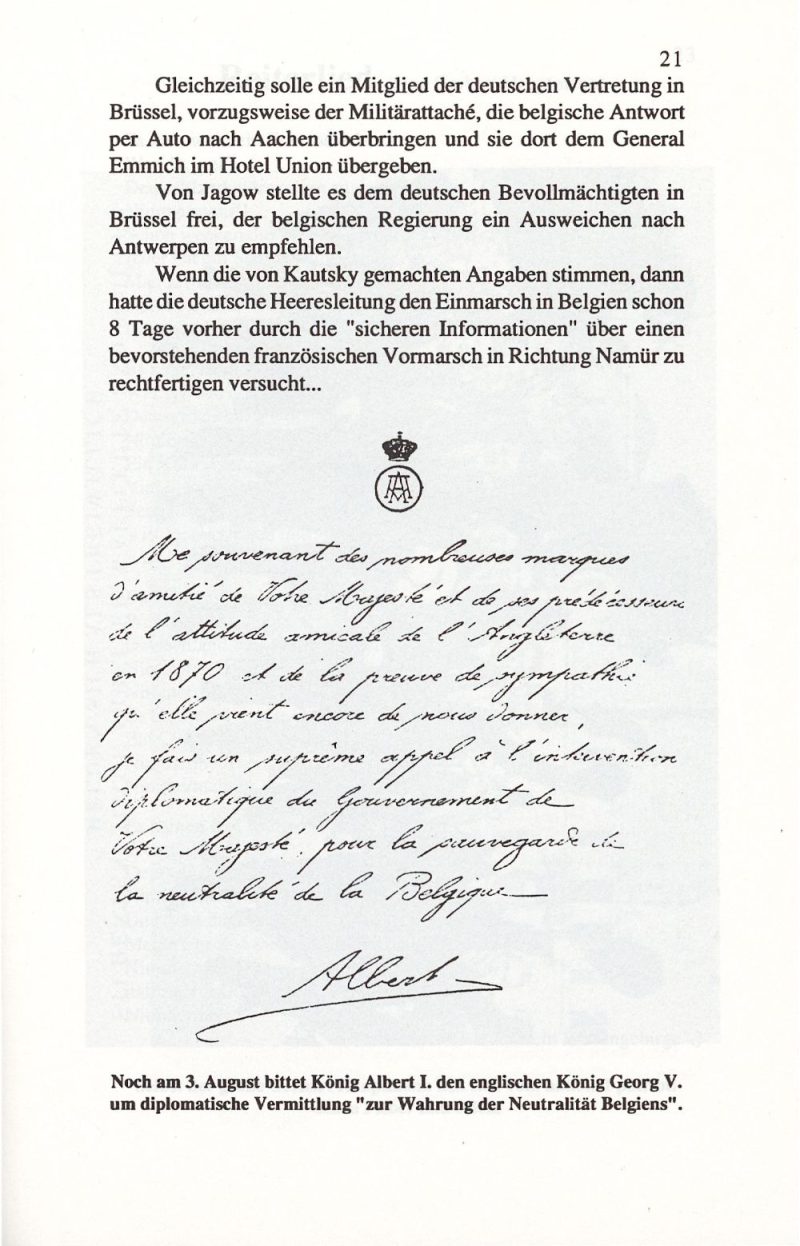 21
Gleichzeitig solle ein Mitglied der deutschen Vertretung in
Brüssel, vorzugsweise der Militärattaché, die belgische Antwort
per Auto nach Aachen überbringen und sie dort dem General
Emmich im Hotel Union übergeben.
Von Jagow stellte es dem deutschen Bevollmächtigten in
Brüssel frei, der belgischen Regierung ein Ausweichen nach
Antwerpen zu empfehlen.
Wenn die von Kautsky gemachten Angaben stimmen, dann
hatte die deutsche Heeresleitung den Einmarsch in Belgien schon
8 Tage vorher durch die "sicheren Informationen" über einen
bevorstehenden französischen Vormarsch in Richtung Namür zu
rechtfertigen versucht...
Me souvenant des nombreuses marques
d'amitié de Votre Majesté et de ses prédécesseurs
de l'attitude amicale de l'Angleterre
en 1870 et de la preuve de sympathie
qu'elle vient encore de nous donner,
je fais un suprême appel à l'intervention
diplomatique du Gouvernement de
Votre Majesté pour la sauvegarde de
la neutralité de la Belgique
Albert
Noch am 3. August bittet König Albert I. den englischen König Georg V.
um diplomatische Vermittlung "zur Wahrung der Neutralität Belgiens".